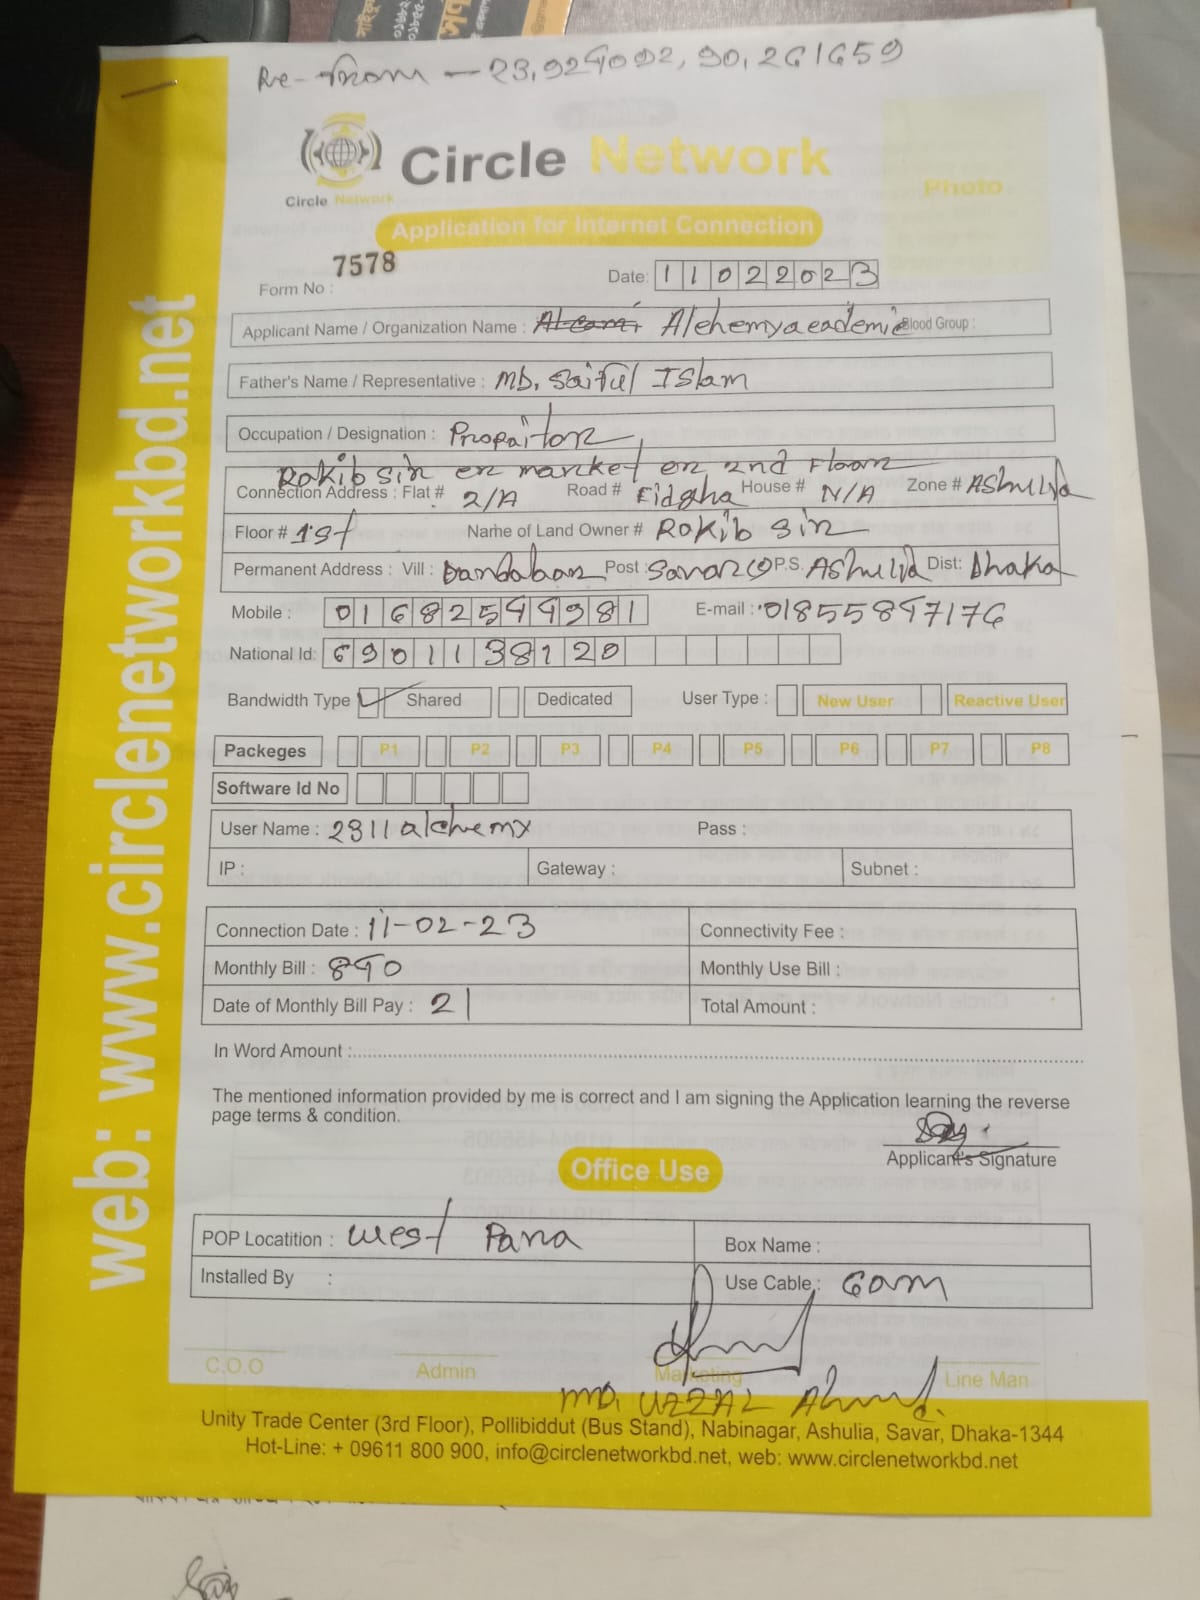 Re-
Circle Network
Circle Network
Photo
Application for Internet Connection
Form No : 7578
Date: 11022023
Applicant Name / Organization Name : Alchemyacademic Blood Group :
Father's Name / Representative : MD. Saiful Islam
Occupation / Designation : Propaitor
Rakib sir er market er 2nd Floor
Connection Address : Flat # 2/A Road # Eidgha House # N/A Zone # Ashulia
Floor # 1st Name of Land Owner # Rokib sir
Permanent Address : Vill : Post : P.S. Ashulia Dist: Dhaka
Mobile : E-mail : 01855897176
National Id: 6901138120
Bandwidth Type Shared Dedicated User Type : New User Reactive User
Packeges P1 P2 P3 P4 P5 P6 P7 P8
Software Id No
User Name : 2311alchemy Pass :
IP : Gateway : Subnet :
Connection Date : 11-02-23 Connectivity Fee :
Monthly Bill : 840 Monthly Use Bill :
Date of Monthly Bill Pay : 21 Total Amount :
In Word Amount :
The mentioned information provided by me is correct and I am signing the Application learning the reverse
page terms & condition.
Applicant's Signature
Office Use
POP Locatition : West Para Box Name :
Installed By : Use Cable :
C.O.O Admin Marketing Line Man
MD. UZZAL Ahmed.
Unity Trade Center (3rd Floor), Pollibiddut (Bus Stand), Nabinagar, Ashulia, Savar, Dhaka-1344
Hot-Line: + 09611 800 900, info@circlenetworkbd.net, web: www.circlenetworkbd.net
web: www.circlenetworkbd.net